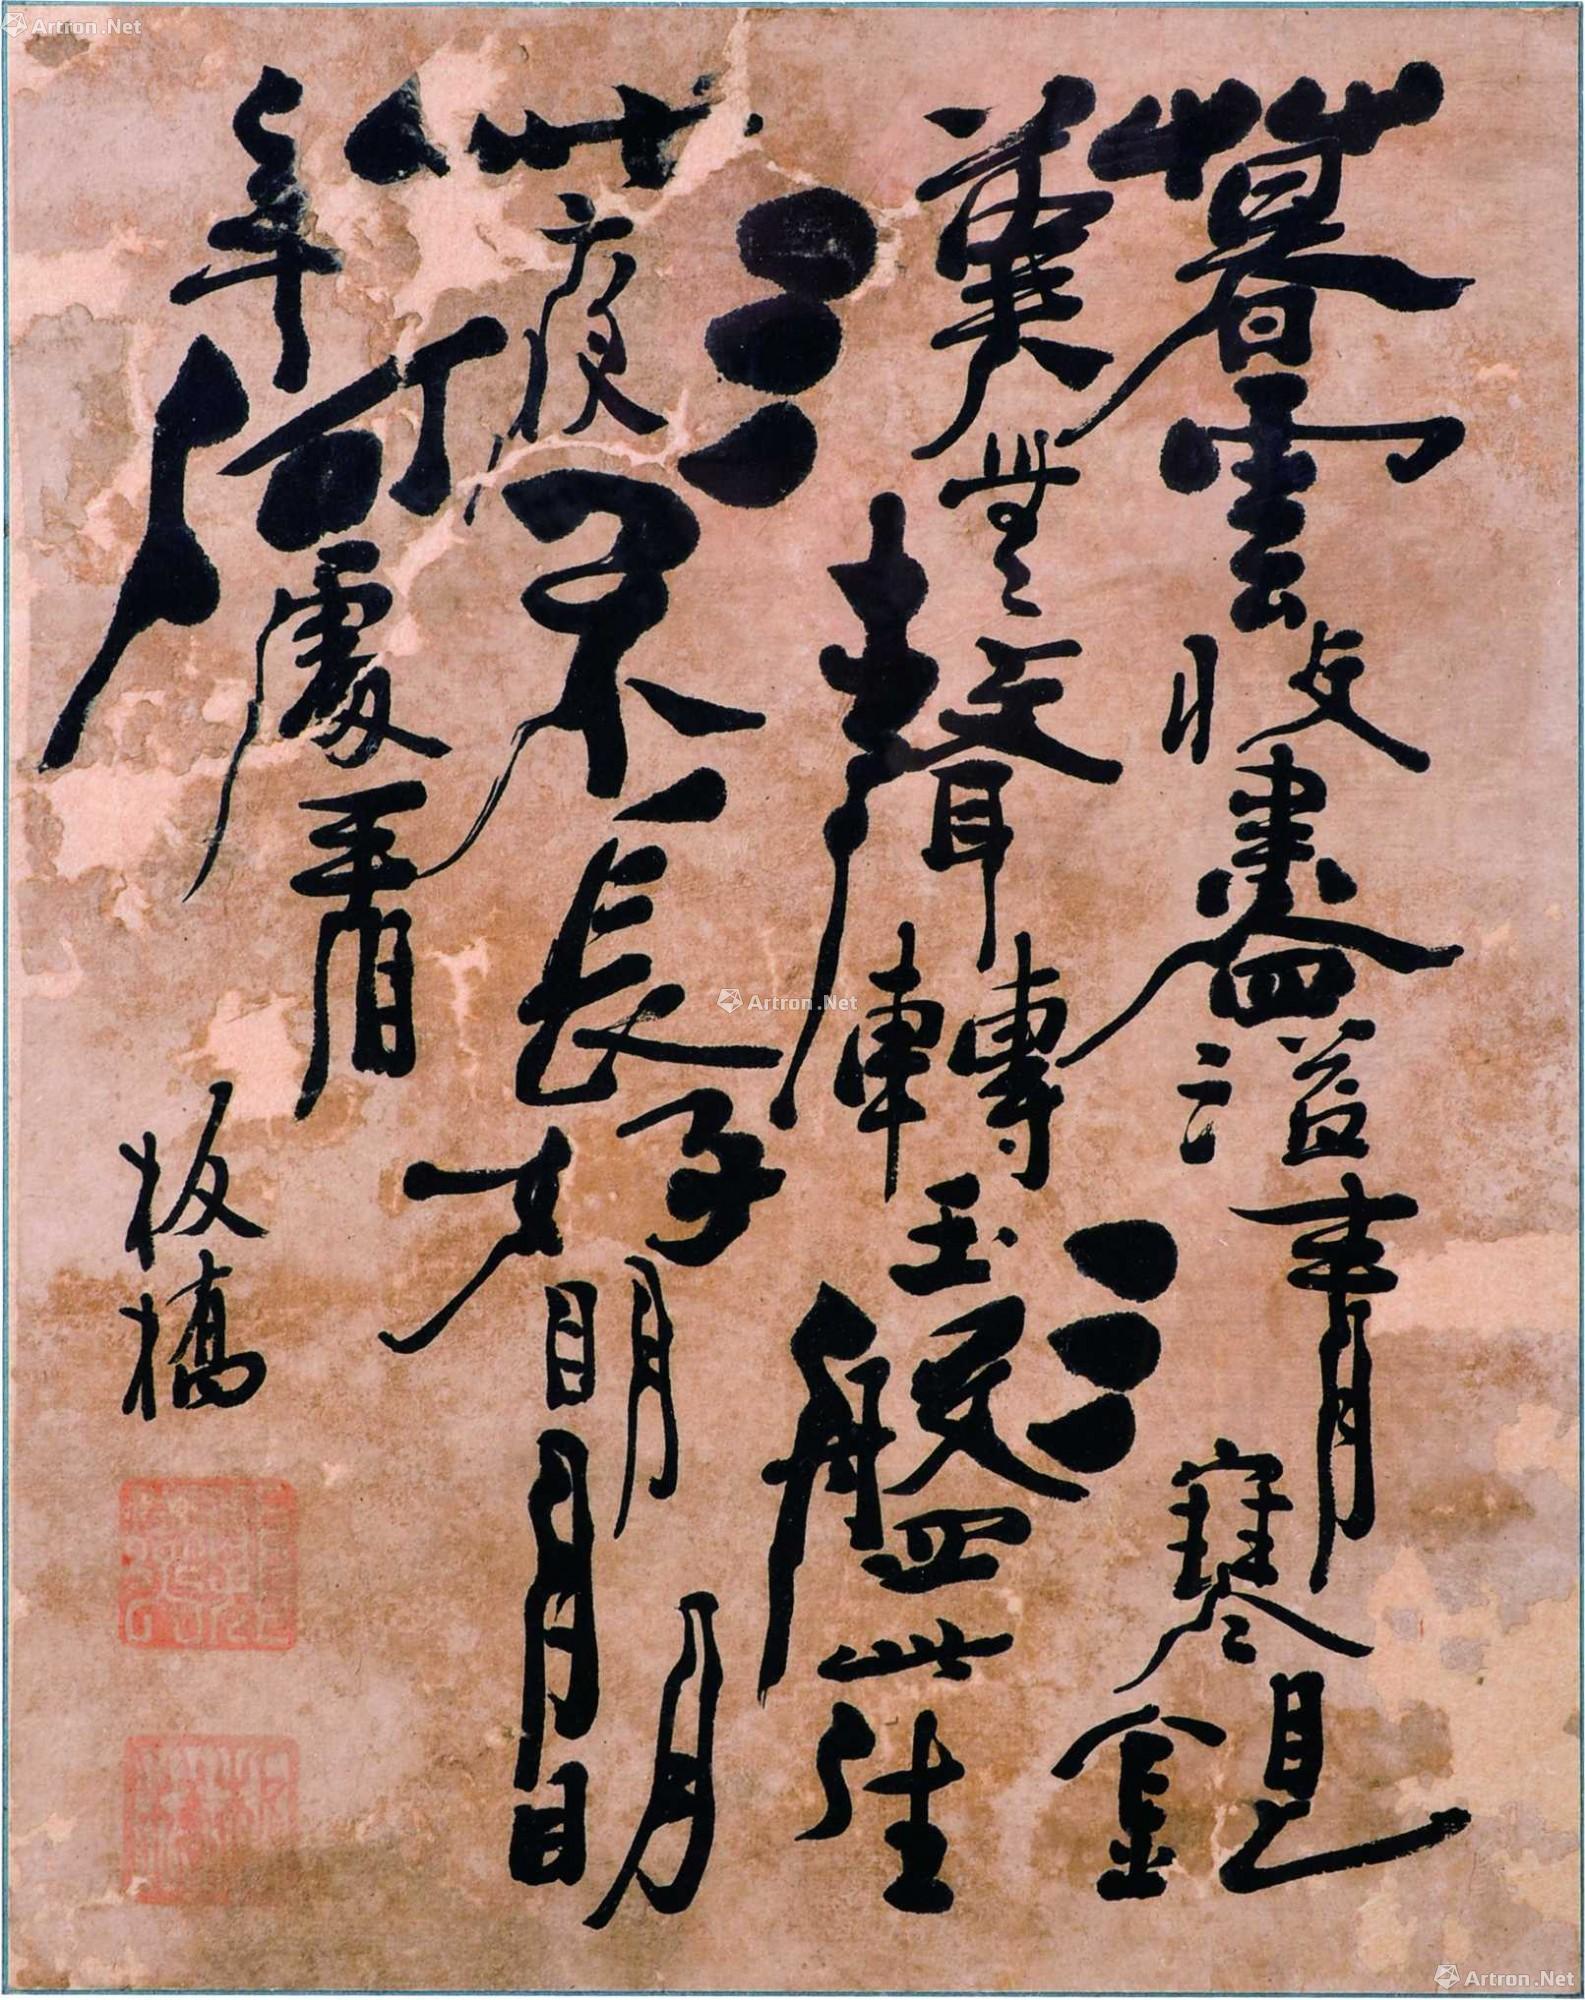 Artron.Net
暮雲收盡溢清寒銀
漢無聲轉玉盤此生
此夜不長好明月明
年何處看
板橋
Artron.Net
Artron.Net